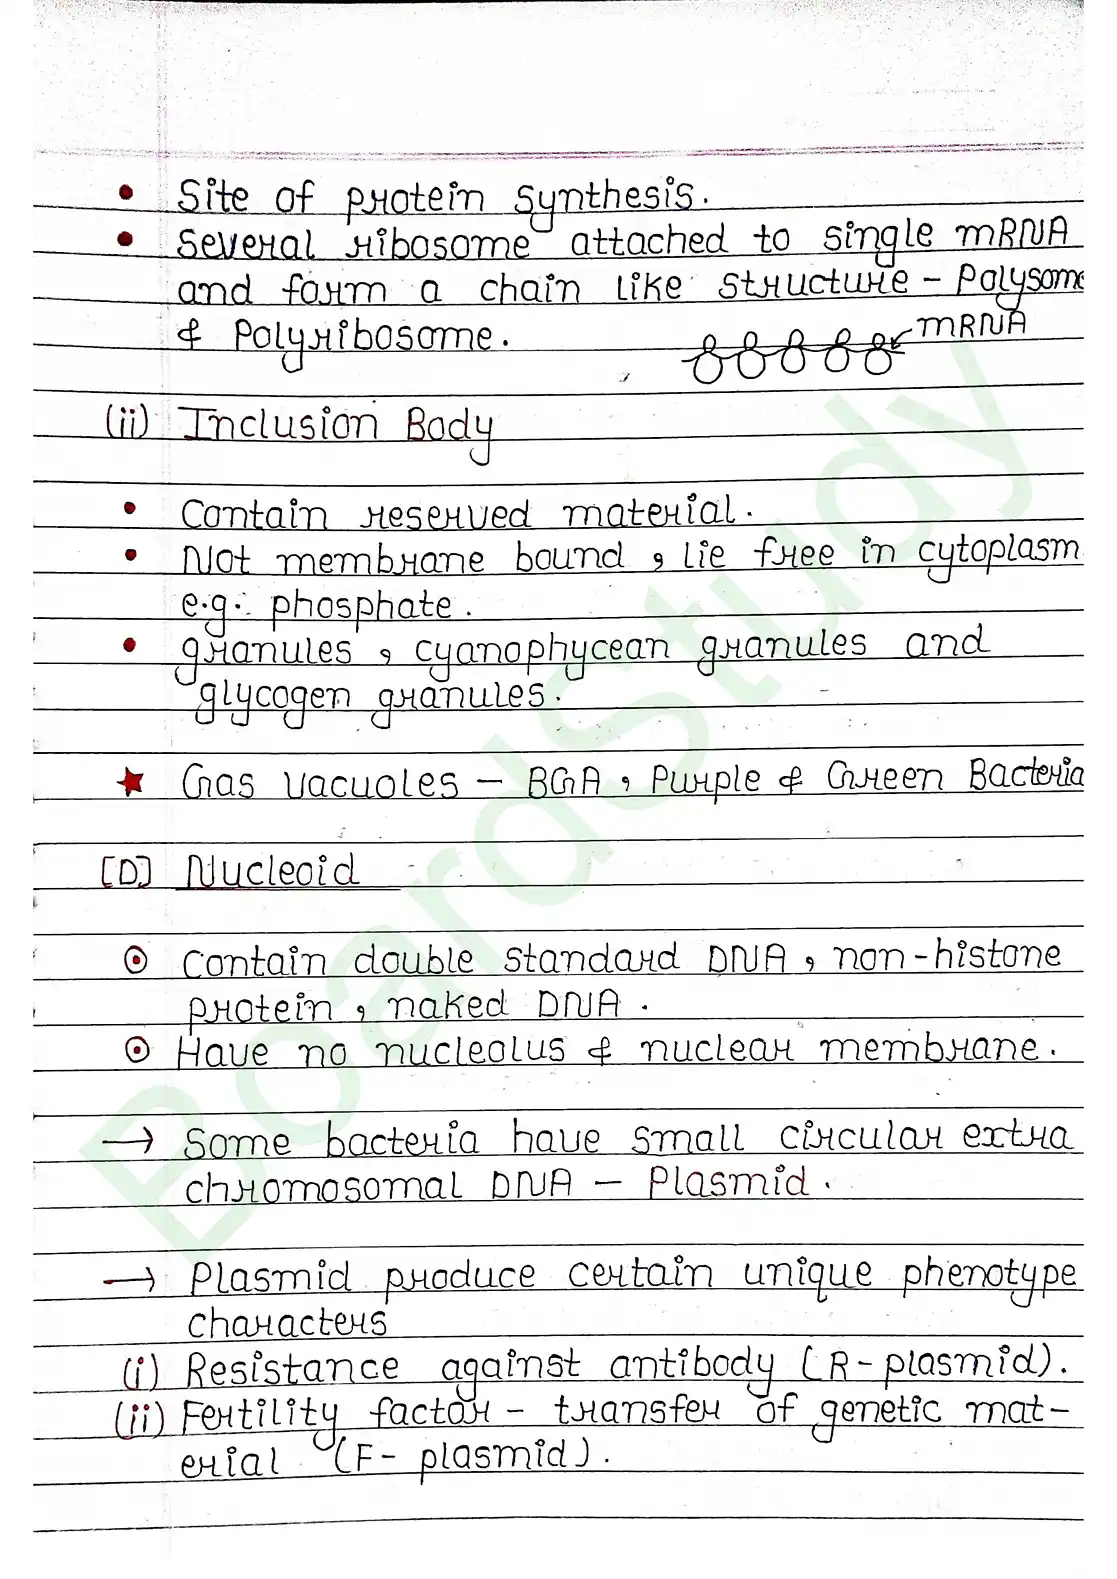 • Site of protein synthesis.
• Several ribosome attached to single mRNA
and form a chain like structure - Polysome
& Polyribosome.
mRNA
(ii) Inclusion Body
• Contain reserved material.
• Not membrane bound, lie free in cytoplasm
e.g:- phosphate.
• granules, cyanophycean granules and
glycogen granules.
★ Gas vacuoles - BGA, Purple & Green Bacteria
[D] Nucleoid
⊙ Contain double standard DNA, non-histone
protein, naked DNA.
⊙ Have no nucleolus & nuclear membrane.
→ Some bacteria have small circular extra
chromosomal DNA - Plasmid.
→ Plasmid produce certain unique phenotype
characters
(i) Resistance against antibody (R-plasmid).
(ii) Fertility factor - transfer of genetic mat-
erial (F- plasmid).
BoardStudy